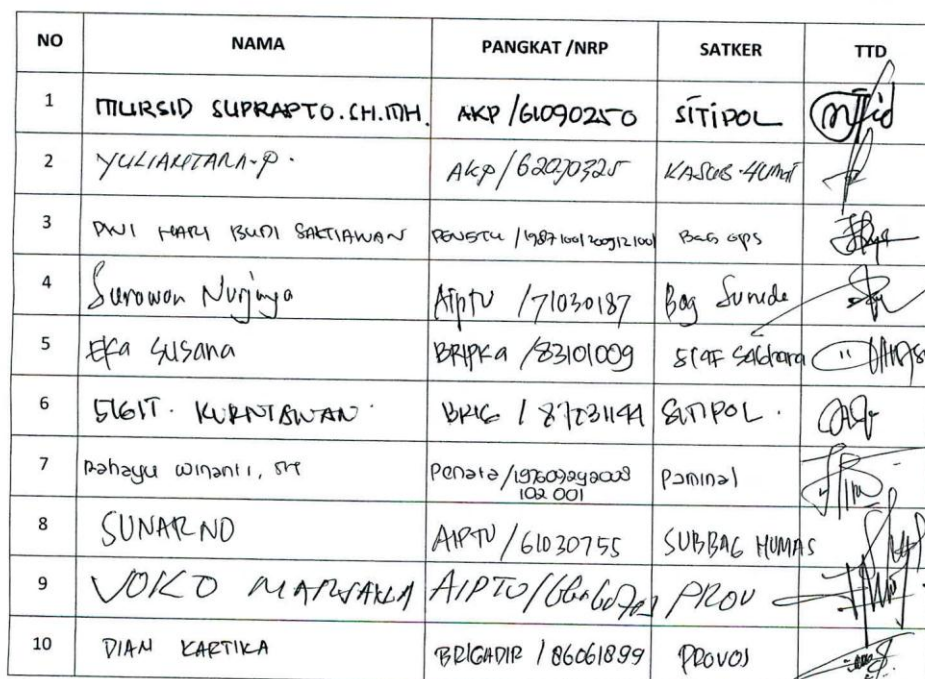 NO NAMA PANGKAT /NRP SATKER TTD
1 MURSID SUPRAPTO.SH.MH. AKP /61090250 SITIPOL
2 YULIANTARA.P. AKP/62070325 KASUB.HUMAS
3 DWI HARI BUDI SAKTIAWAN PENGTU /198710012009121001 Bag ops
4 Surawan AIPTU /71030187 Bag Sumda
5 Eka Susana BRIPKA /83101009 STAF
6 SIGIT. KURNIAWAN. BRIG / 87031144 SITIPOL.
7 Rahayu Winanti, Penata/197609292008
102 001 Paminal
8 SUNARNO AIPTU /61030755 SUBBAG HUMAS
9 JOKO AIPTU/ PROV
10 DIAN KARTIKA BRIGADIR / 86061899 PROVOS